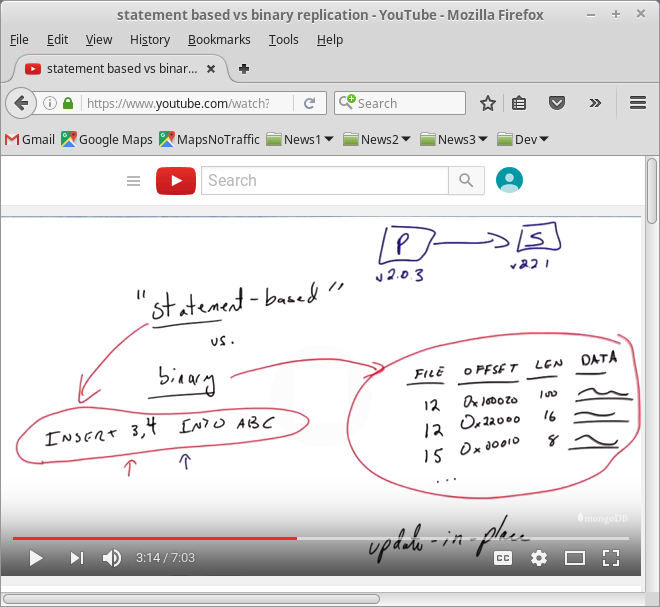 statement based vs binary replication - YouTube - Mozilla Firefox
File Edit View History Bookmarks Tools Help
statement based vs binar...
https://www.youtube.com/watch? Search
Gmail Google Maps MapsNoTraffic News1 News2 News3 Dev
Search
P S
v2.0.3 v2.2.1
"statement-based"
vs.
binary
FILE OFFSET LEN DATA
12 0x100020 100
12 0x22000 16
15 0x00010 8
...
INSERT 3,4 INTO ABC
mongoDB
update-in-place
3:14 / 7:03 CC